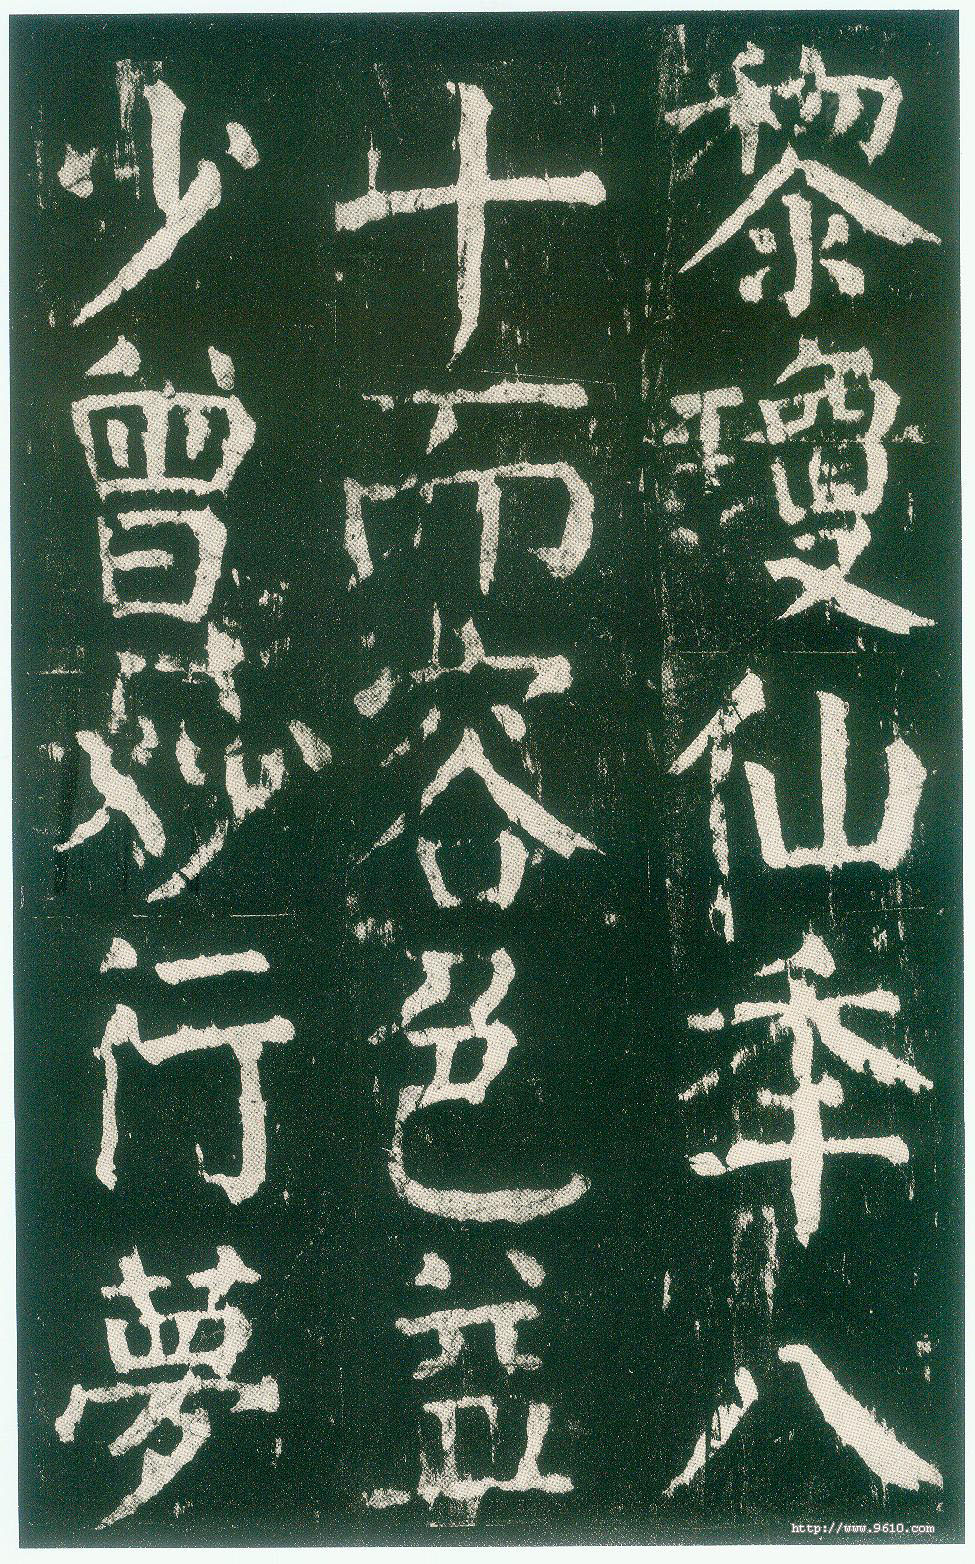 黎瓊仙秊八
十而容色益
少曾妙行夢
http://www.9610.com